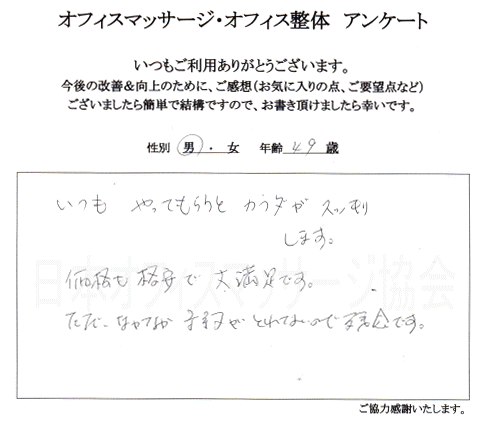 オフィスマッサージ・オフィス整体 アンケート
いつもご利用ありがとうございます。
今後の改善＆向上のために、ご感想（お気に入りの点、ご要望点など）
ございましたら簡単で結構ですので、お書き頂けましたら幸いです。
性別 男 ・ 女 年齢 49 歳
いつも やってもらうと カラダが スッキリ
します。
価格も格安で大満足です。
ただ、なかなか予約がとれないので残念です。
日本オフィスマッサージ協会
ご協力感謝いたします。